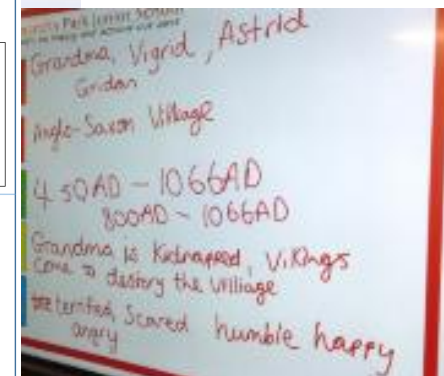 Park Junior School
Grandma, Vigrid, Astrid
Gridan
Anglo-Saxon Village
450AD - 1066AD
800AD - 1066AD
Grandma is Kidnapped, Vikings
come to destory the villiage
terrified, Scared humble happy
angry